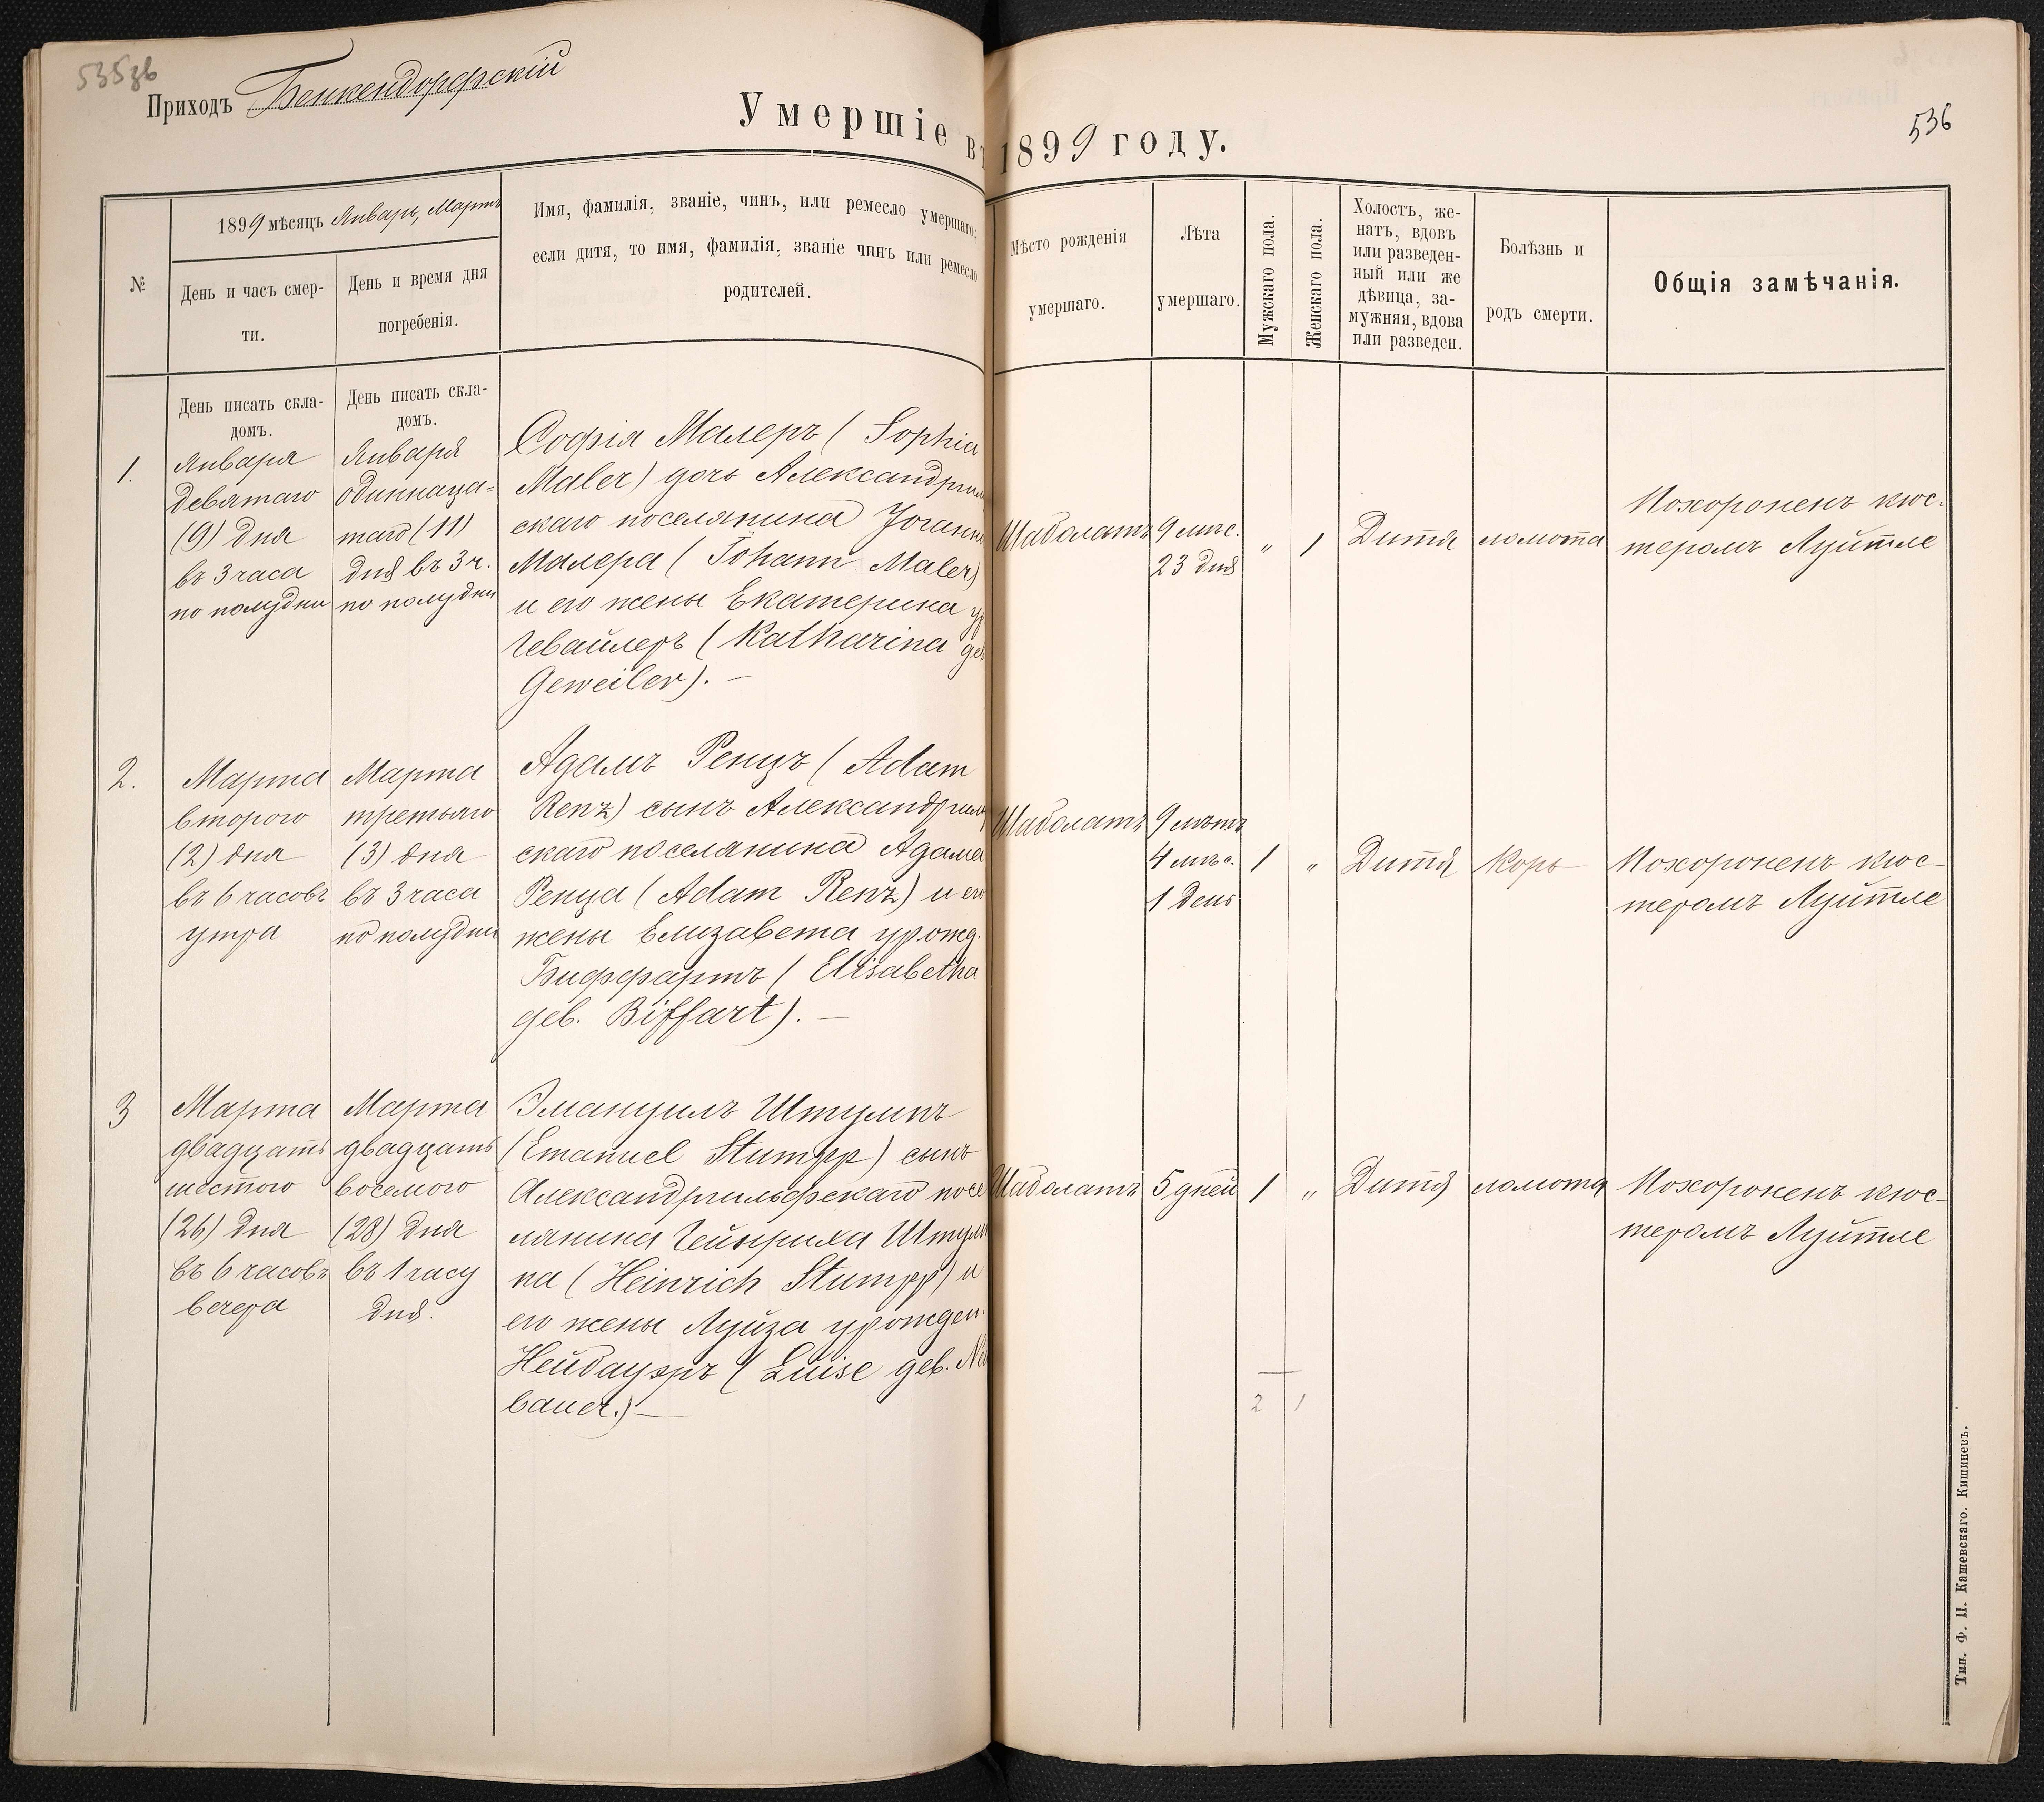 5353б
Приходъ Бенкендорфскій
Умершіе въ 1899 году.
536
№
1899 мѣсяцъ Январь, Мартъ
День и часъ смер-
ти.
День и время дня
погребенія.
Имя, фамилія, званіе, чинъ, или ремесло умершаго;
если дитя, то имя, фамилія, званіе чинъ или ремесло
родителей.
Мѣсто рожденія
умершаго.
Лѣта
умершаго.
Мужскаго пола.
Женскаго пола.
Холостъ, же-
натъ, вдовъ
или разведен-
ный или же
дѣвица, за-
мужняя, вдова
или разведен.
Болѣзнь и
родъ смерти.
Общія замѣчанія.
День писать скла-
домъ.
День писать скла-
домъ.
1.
Января
девятаго
(9) дня
въ 3 часа
по полудни
Января
одиннаца-
таго (11)
дня въ 3 ч.
по полудни
Софія Малеръ (Sophia
Maler) дочь Александриль
скаго поселянина Іоганн
Малера (Johann Maler)
и его жены Екатерина ур
Гевайлеръ (Katharina geb
Geweiler). —
Шаболатъ
9 мѣс.
23 дня
„
1
Дитя
ломота
Похороненъ кюс-
теромъ Луйтле
2.
Марта
второго
(2) дня
въ 6 часовъ
утра
Марта
третьяго
(3) дня
въ 3 часа
по полудни
Адамъ Ренцъ (Adam
Renz) сынъ Александриль
скаго поселянина Адама
Ренца (Adam Renz) и его
жены Елизавета урожд.
Биффартъ (Elisabetha
geb. Biffart). —
Шаболатъ
9 лѣтъ
4 мѣс.
1 день
1
„
Дитя
Корь
Похороненъ кюс-
теромъ Луйтле
3
Марта
двадцать
шестого
(26) дня
въ 6 часовъ
вечера
Марта
двадцать
восемого
(28) дня
въ 1 часу
дня.
Эмануилъ Штумпъ
(Emanuel Stumpp) сынъ
Александрильфскаго посе
лянина Гейнриха Штум
па (Heinrich Stumpp) и
его жены Луйза урожден.
Нейбауэръ (Luise geb. Neu
bauer.) —
Шаболатъ
5 дней
1
„
Дитя
ломота
Похороненъ кюс-
теромъ Луйтле
2
1
Тип. Ф. П. Кашевскаго. Кишиневъ.